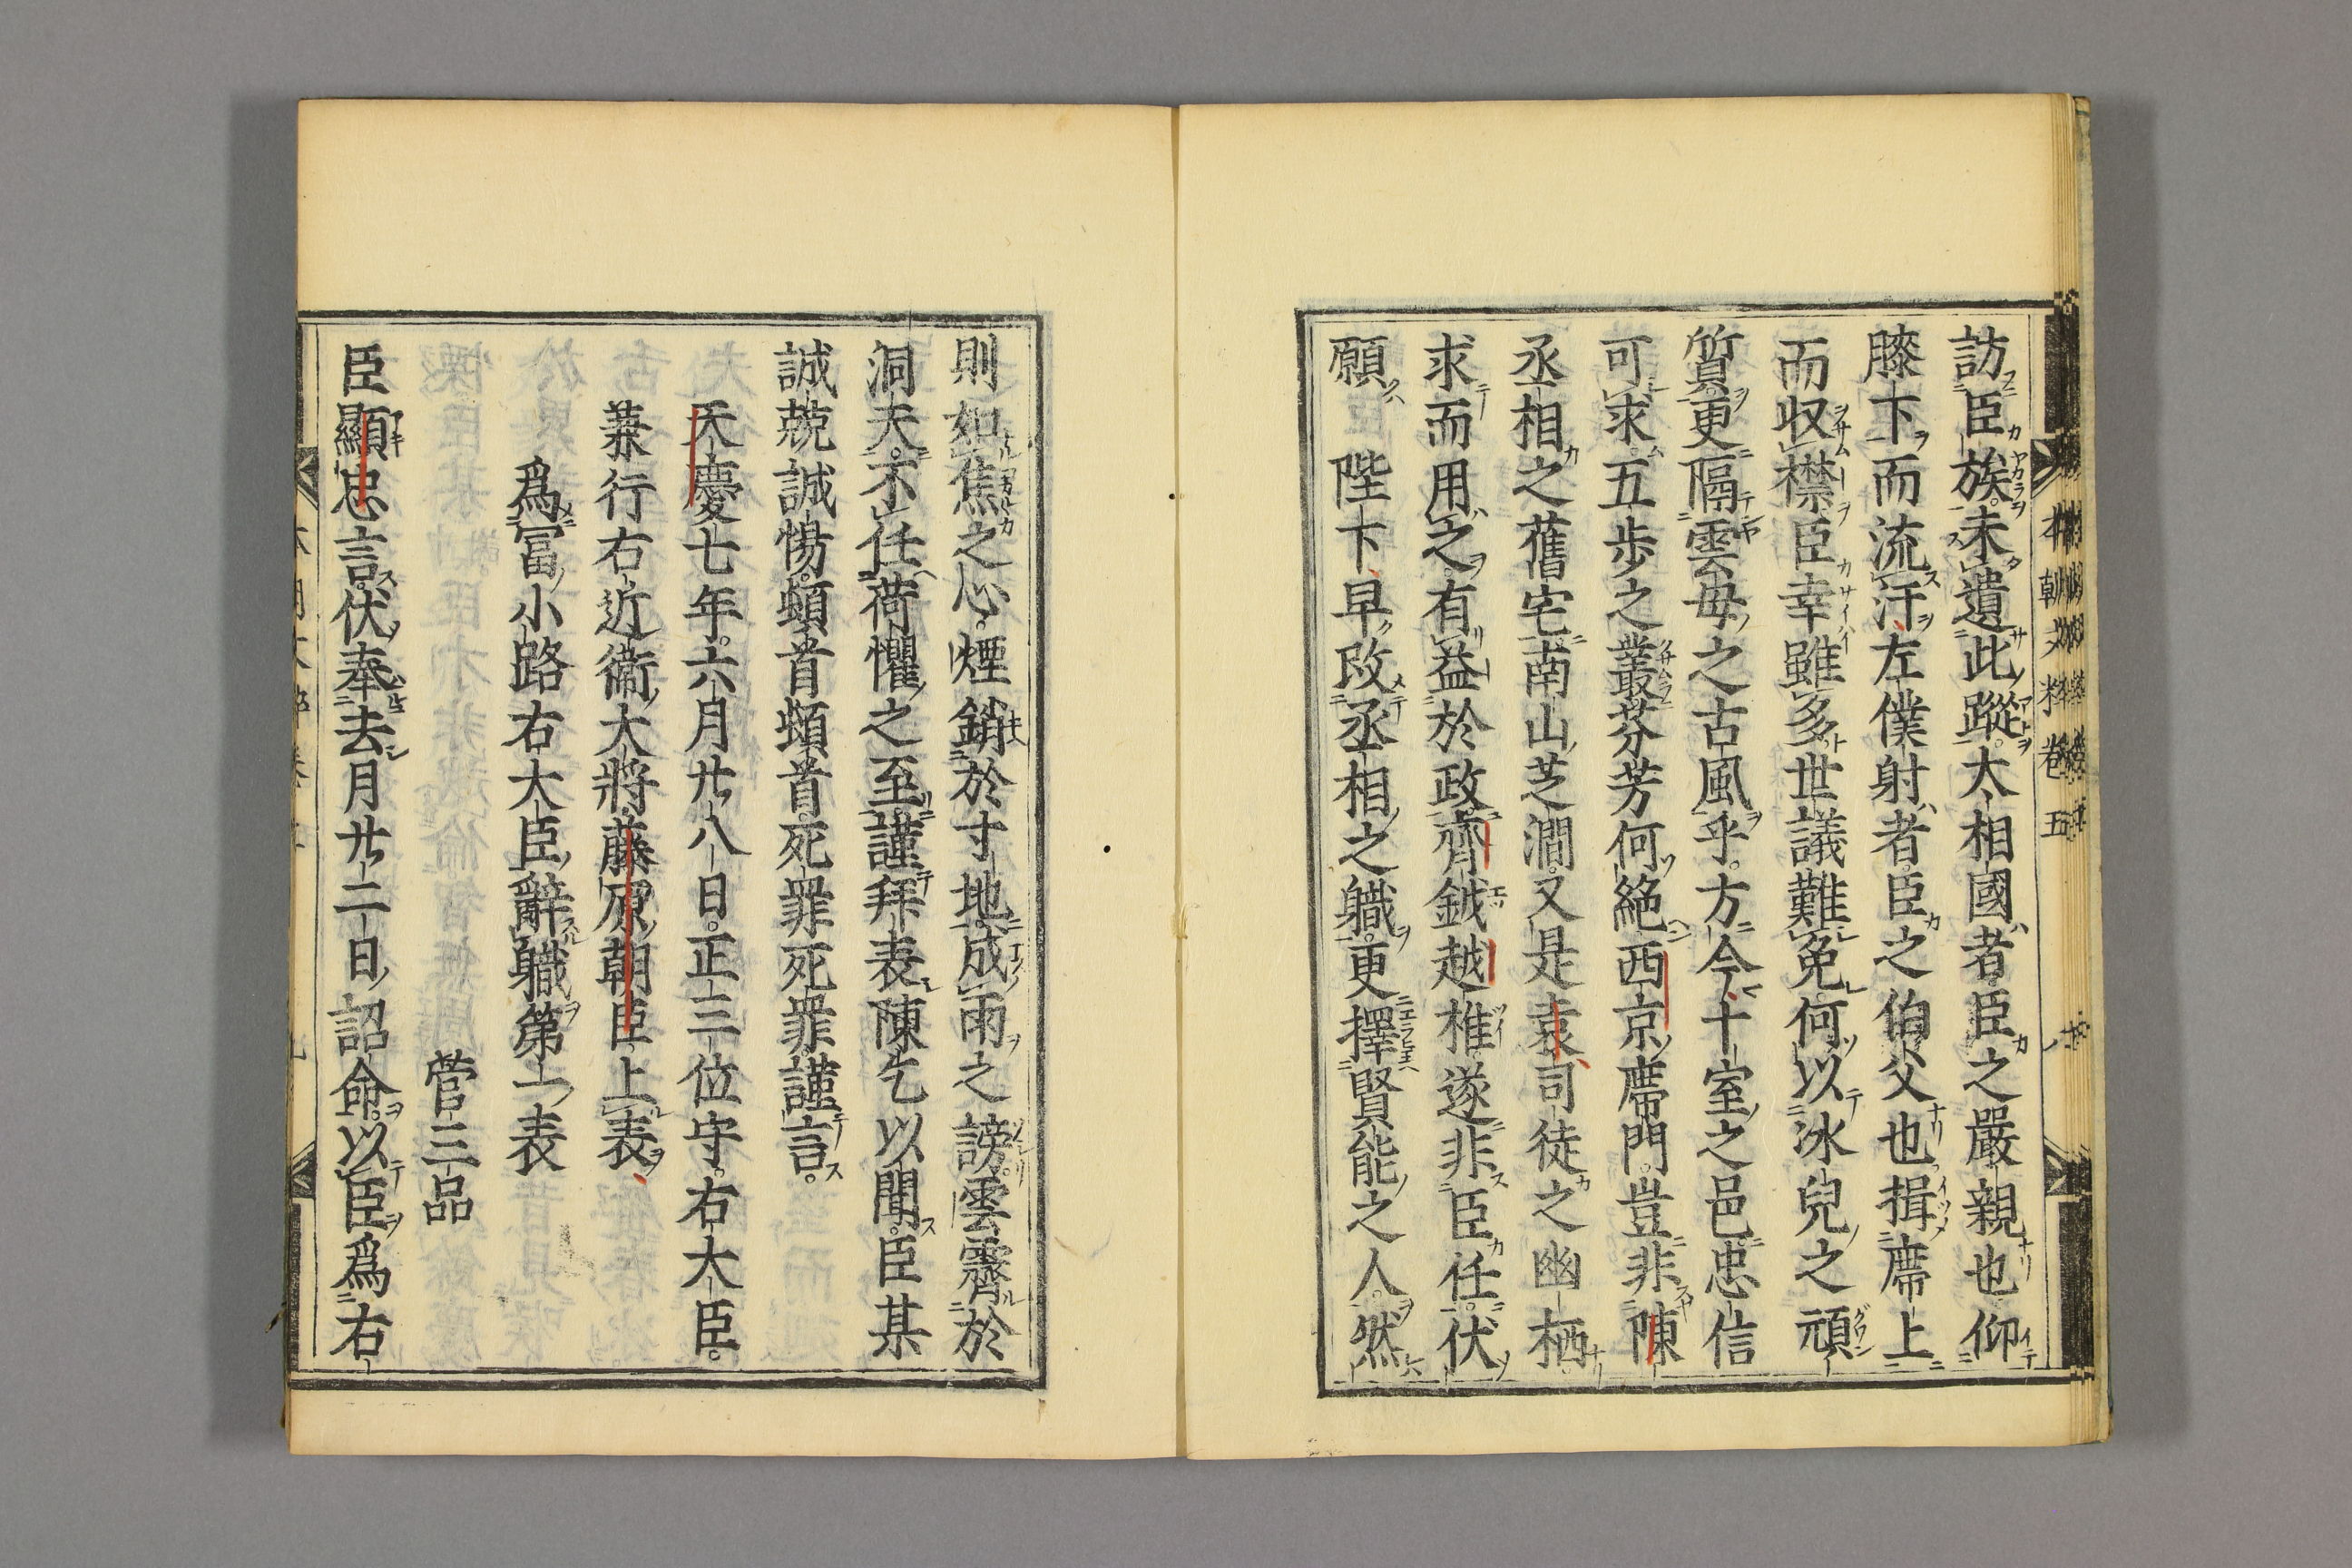 訪臣族未遺此蹤太相國者臣之嚴親也仰
膝下而流汗左僕射者臣之伯父也揖席上
而収襟臣幸雖多世議難免何以冰兒之頑
質更隔雲母之古風乎方今十室之邑忠信
可求五歩之叢芬芳何絶西京席門豈非陳
丞相之舊宅南山芝澗又是袁司徒之幽栖
求而用之有益於政齊鉞越椎遂非臣任伏
願 陛下早改丞相之職更擇賢能之人然
則如焦之心煙銷於寸地成雨之謗雲霽於
洞天不任荷懼之至謹拜表陳乞以聞臣某
誠兢誠惕頓首頓首死罪死罪謹言。
天慶七年。六月廿八日。正三位守。右大臣。
兼行右近衞大將藤原朝臣上表
爲冨小路右大臣辭職第一表
菅三品
臣顯忠言伏奉去月廿二日詔命以臣爲右
本朝文粹卷五